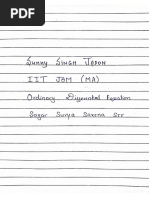 Sunny SINGH JADON
IIT JAM (MA)
Ordinary Differential Equation
Sagar Surya Saxena Sir